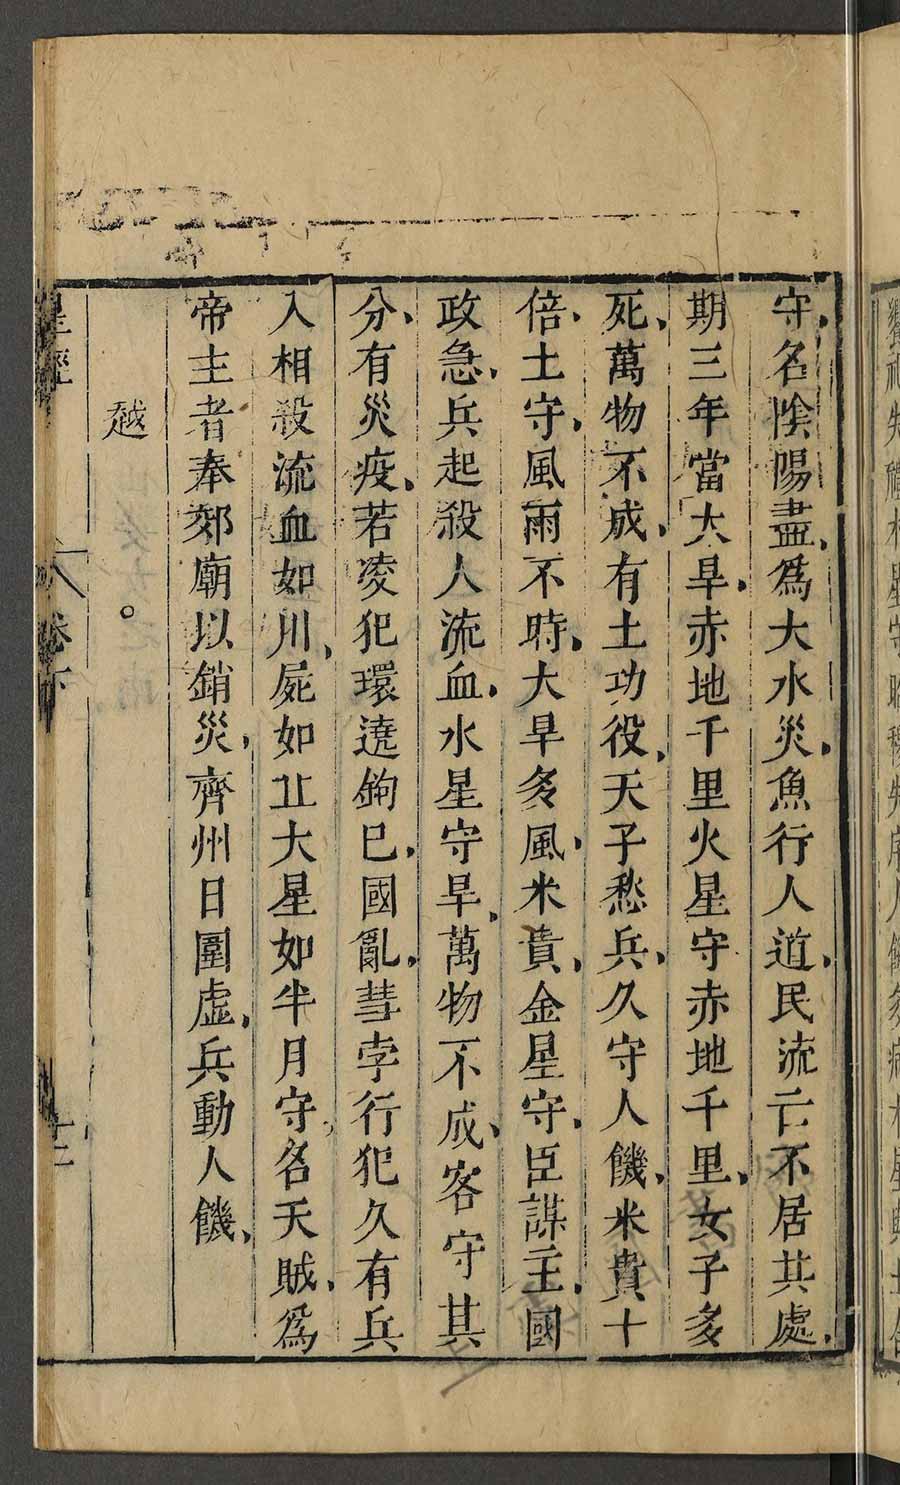 守、名陰陽盡、爲大水災、魚行人道、民流亡不居其處、
期三年當大旱、赤地千里火星守赤地千里、女子多
死、萬物不成、有土功役、天子愁兵、久守人饑、米貴十
倍、土守、風雨不時、大旱多風、米貴、金星守、臣謀主、國
政急、兵起殺人流血、水星守旱、萬物不成、客守其
分、有災疫、若凌犯環遶鉤巳、國亂、彗孛行犯久有兵
入相殺流血如川、屍如丘大星如半月守、名天賊、爲
帝主者奉郊廟以銷災、齊州日圍虛、兵動人饑、
越。
星經 卷下 十二